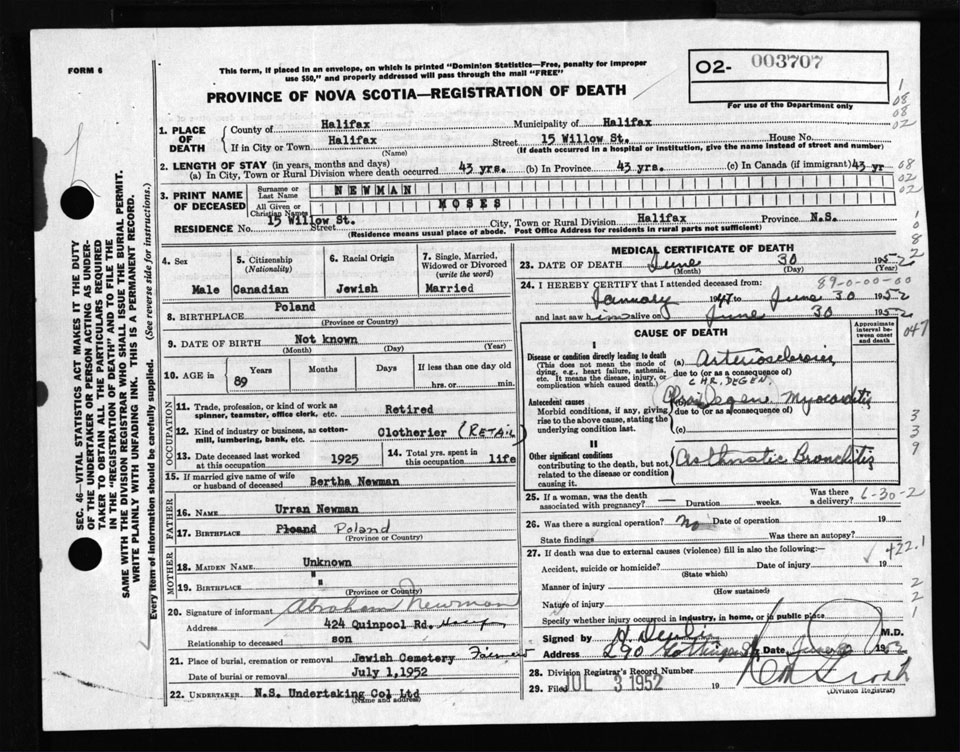 FORM 6
This form, if placed in an envelope, on which is printed "Dominion Statistics—Free, penalty for improper
use $50," and properly addressed will pass through the mail "FREE"
PROVINCE OF NOVA SCOTIA—REGISTRATION OF DEATH
02- 003707
For use of the Department only
1. PLACE OF DEATH
County of Halifax Municipality of Halifax
If in City or Town Halifax Street 15 Willow St. House No.
(Name) (If death occurred in a hospital or institution, give the name instead of street and number)
2. LENGTH OF STAY (in years, months and days)
(a) In City, Town or Rural Division where death occurred 43 yrs. (b) In Province 43 yrs. (c) In Canada (if immigrant) 43 yr
3. PRINT NAME OF DECEASED
Surname or Last Name NEWMAN
All Given or Christian Names MOSES
RESIDENCE No. 15 Willow St. Street City, Town or Rural Division Halifax Province N.S.
(Residence means usual place of abode. Post Office Address for residents in rural parts not sufficient)
SEC. 46—VITAL STATISTICS ACT MAKES IT THE DUTY
OF THE UNDERTAKER OR PERSON ACTING AS UNDER-
TAKER TO OBTAIN ALL THE PARTICULARS REQUIRED
IN THE "REGISTRATION OF DEATH" AND TO FILE THE
SAME WITH THE DIVISION REGISTRAR WHO SHALL ISSUE THE BURIAL PERMIT.
WRITE PLAINLY WITH UNFADING INK. THIS IS A PERMANENT RECORD.
Every item of information should be carefully supplied. (See reverse side for instructions.)
4. Sex
Male
5. Citizenship
(Nationality)
Canadian
6. Racial Origin
Jewish
7. Single, Married,
Widowed or Divorced
(write the word)
Married
8. BIRTHPLACE Poland
(Province or Country)
9. DATE OF BIRTH Not known
(Month) (Day) (Year)
10. AGE in Years Months Days If less than one day old
89 hrs. or min.
OCCUPATION
11. Trade, profession, or kind of work as
spinner, teamster, office clerk, etc. Retired
12. Kind of industry or business, as cotton-
mill, lumbering, bank, etc. Clotherier (RETAIL)
13. Date deceased last worked
at this occupation 1925
14. Total yrs. spent in
this occupation life
15. If married give name of wife
or husband of deceased Bertha Newman
FATHER
16. NAME Urran Newman
17. BIRTHPLACE Ploand Poland
(Province or Country)
MOTHER
18. MAIDEN NAME Unknown
19. BIRTHPLACE "
(Province or Country)
20. Signature of informant Abraham Newman
Address 424 Quinpool Rd.
Relationship to deceased son
21. Place of burial, cremation or removal Jewish Cemetery
Date of burial or removal July 1,1952
22. UNDERTAKER N.S. Undertaking Col Ltd
(Name and address)
MEDICAL CERTIFICATE OF DEATH
23. DATE OF DEATH June 30 1952
(Month) (Day) (Year)
89-0-00-00
24. I HEREBY CERTIFY that I attended deceased from:
January to June 30 1952
and last saw him alive on June 30 1952
CAUSE OF DEATH
Approximate
interval be-
tween onset
and death
I
Disease or condition directly leading to death
(This does not mean the mode of
dying, e.g., heart failure, asthenia,
etc. It means the disease, injury, or
complication which caused death.)
(a) Arteriosclerosis
due to (or as a consequence of)
CHR. DEGEN.
Antecedent causes
Morbid conditions, if any, giving
rise to the above cause, stating the
underlying condition last.
(b) Degene. Myocarditis
due to (or as a consequence of)
(c)
II
Other significant conditions
contributing to the death, but not
related to the disease or condition
causing it.
Asthmatic Bronchitis
25. If a woman, was the death
associated with pregnancy? — Duration weeks. Was there
a delivery? 6-30-2
26. Was there a surgical operation? No Date of operation 19
State findings Was there an autopsy?
27. If death was due to external causes (violence) fill in also the following:—
Accident, suicide or homicide? Date of injury 19
(State which)
422.1
Manner of injury
(How sustained)
Nature of injury
Specify whether injury occurred in industry, in home, or in public place
Signed by M.D.
Address 290 Date June 30 1952
28. Division Registrar's Record Number
29. Filed JUL 3 1952 19
(Division Registrar)
1
08
08
02
08
02
02
1
0
8
2
2
047
3
3
9
2
2
1